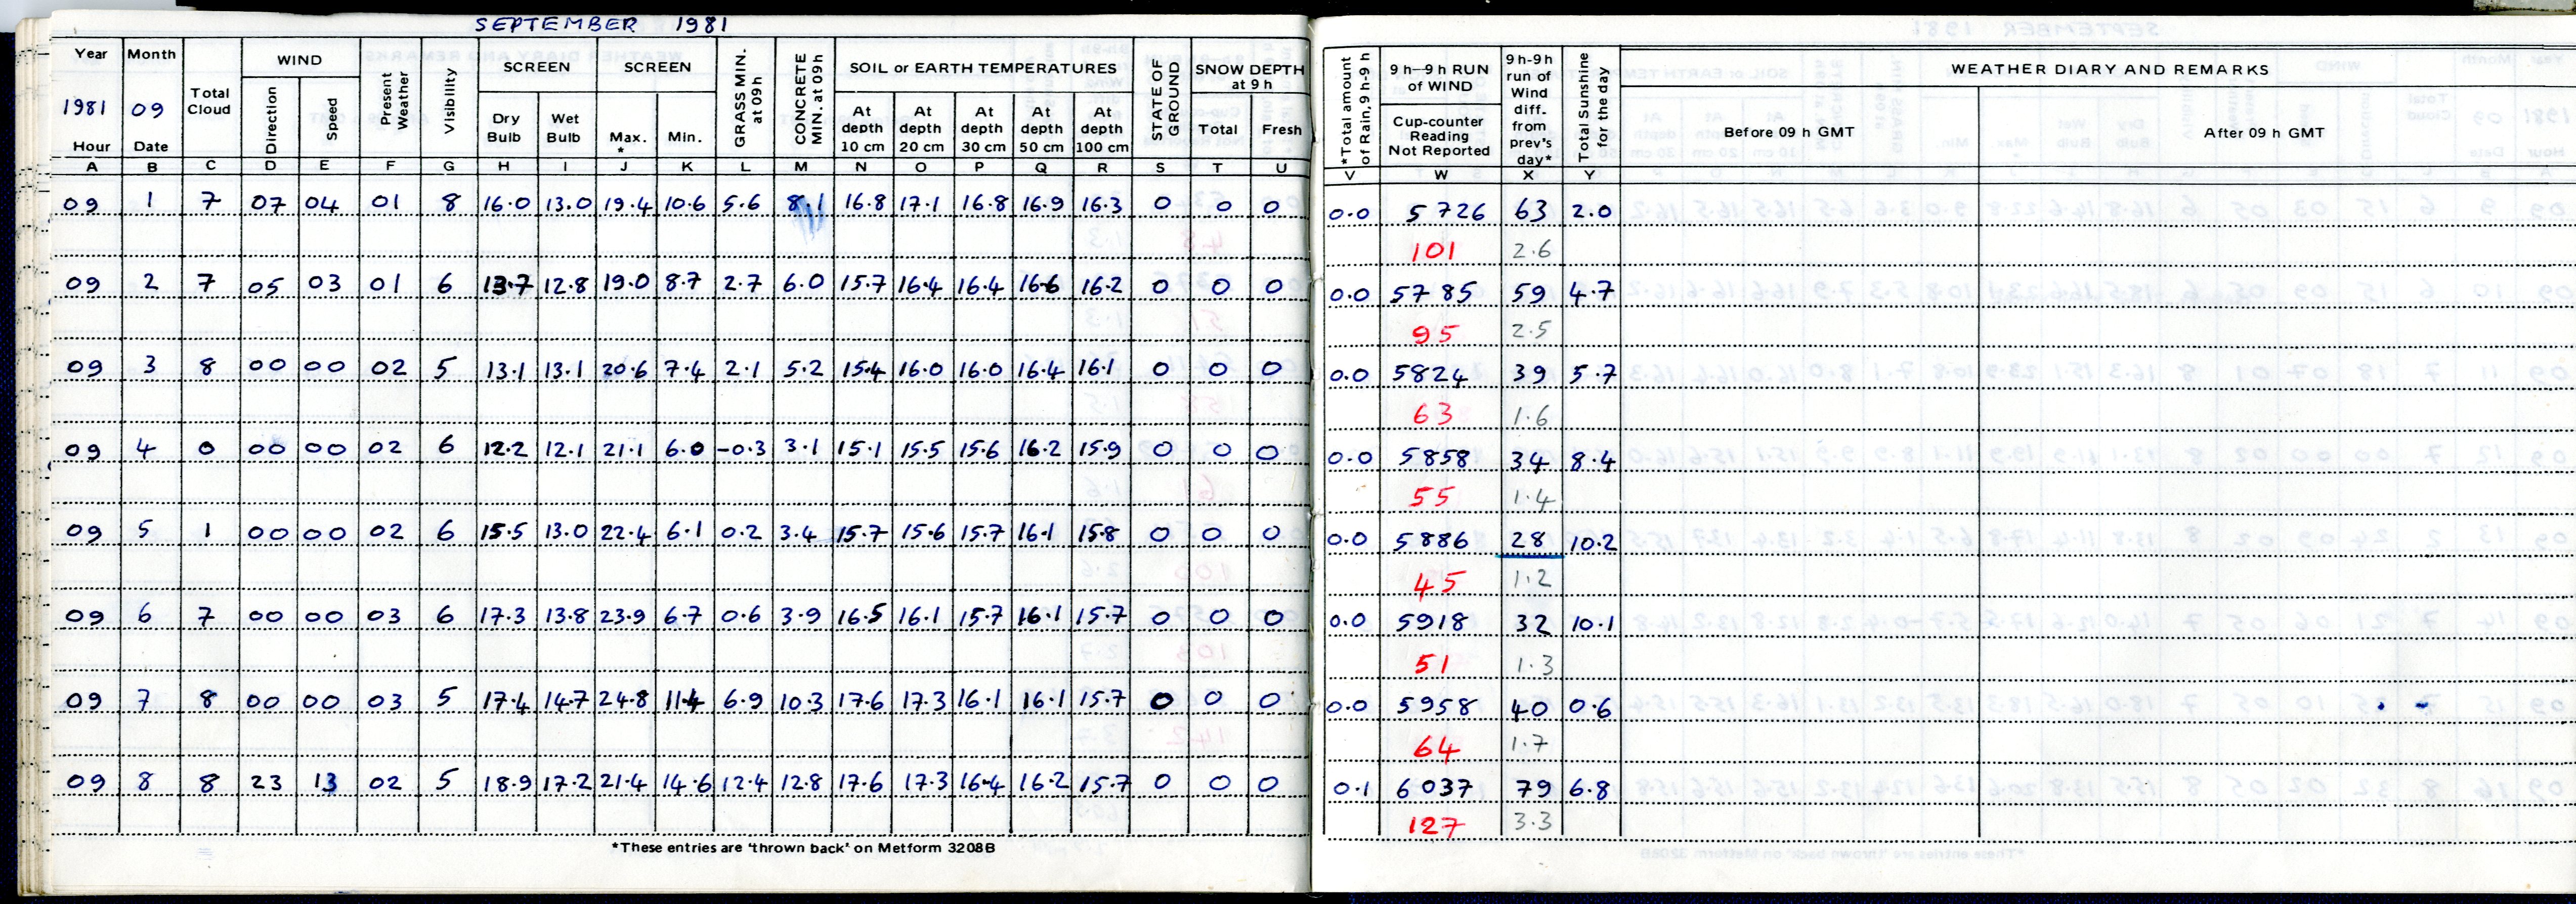 SEPTEMBER 1981
Year Month Total Cloud WIND Present Weather Visibility SCREEN SCREEN GRASS MIN. at 09 h CONCRETE MIN. at 09h SOIL or EARTH TEMPERATURES STATE OF GROUND SNOW DEPTH at 9 h *Total amount of Rain, 9 h-9 h 9 h—9 h RUN of WIND 9 h-9h run of Wind diff. from prev's day* Total Sunshine for the day WEATHER DIARY AND REMARKS
1981 09 Direction Speed Dry Bulb Wet Bulb Max. * Min. At depth 10 cm At depth 20 cm At depth 30 cm At depth 50 cm At depth 100 cm Total Fresh Cup-counter Reading Not Reported Before 09 h GMT After 09 h GMT
Hour Date
A B C D E F G H I J K L M N O P Q R S T U V W X Y
09 1 7 07 04 01 8 16.0 13.0 19.4 10.6 5.6 8.1 16.8 17.1 16.8 16.9 16.3 0 0 0 0.0 5726 63 2.0
101 2.6
09 2 7 05 03 01 6 13.7 12.8 19.0 8.7 2.7 6.0 15.7 16.4 16.4 16.6 16.2 0 0 0 0.0 5785 59 4.7
95 2.5
09 3 8 00 00 02 5 13.1 13.1 20.6 7.4 2.1 5.2 15.4 16.0 16.0 16.4 16.1 0 0 0 0.0 5824 39 5.7
63 1.6
09 4 0 00 00 02 6 12.2 12.1 21.1 6.0 -0.3 3.1 15.1 15.5 15.6 16.2 15.9 0 0 0 0.0 5858 34 8.4
55 1.4
09 5 1 00 00 02 6 15.5 13.0 22.4 6.1 0.2 3.4 15.7 15.6 15.7 16.1 15.8 0 0 0 0.0 5886 28 10.2
45 1.2
09 6 7 00 00 03 6 17.3 13.8 23.9 6.7 0.6 3.9 16.5 16.1 15.7 16.1 15.7 0 0 0 0.0 5918 32 10.1
51 1.3
09 7 8 00 00 03 5 17.4 14.7 24.8 11.4 6.9 10.3 17.6 17.3 16.1 16.1 15.7 0 0 0 0.0 5958 40 0.6
64 1.7
09 8 8 23 13 02 5 18.9 17.2 21.4 14.6 12.4 12.8 17.6 17.3 16.4 16.2 15.7 0 0 0 0.1 6037 79 6.8
127 3.3
*These entries are 'thrown back' on Metform 3208B